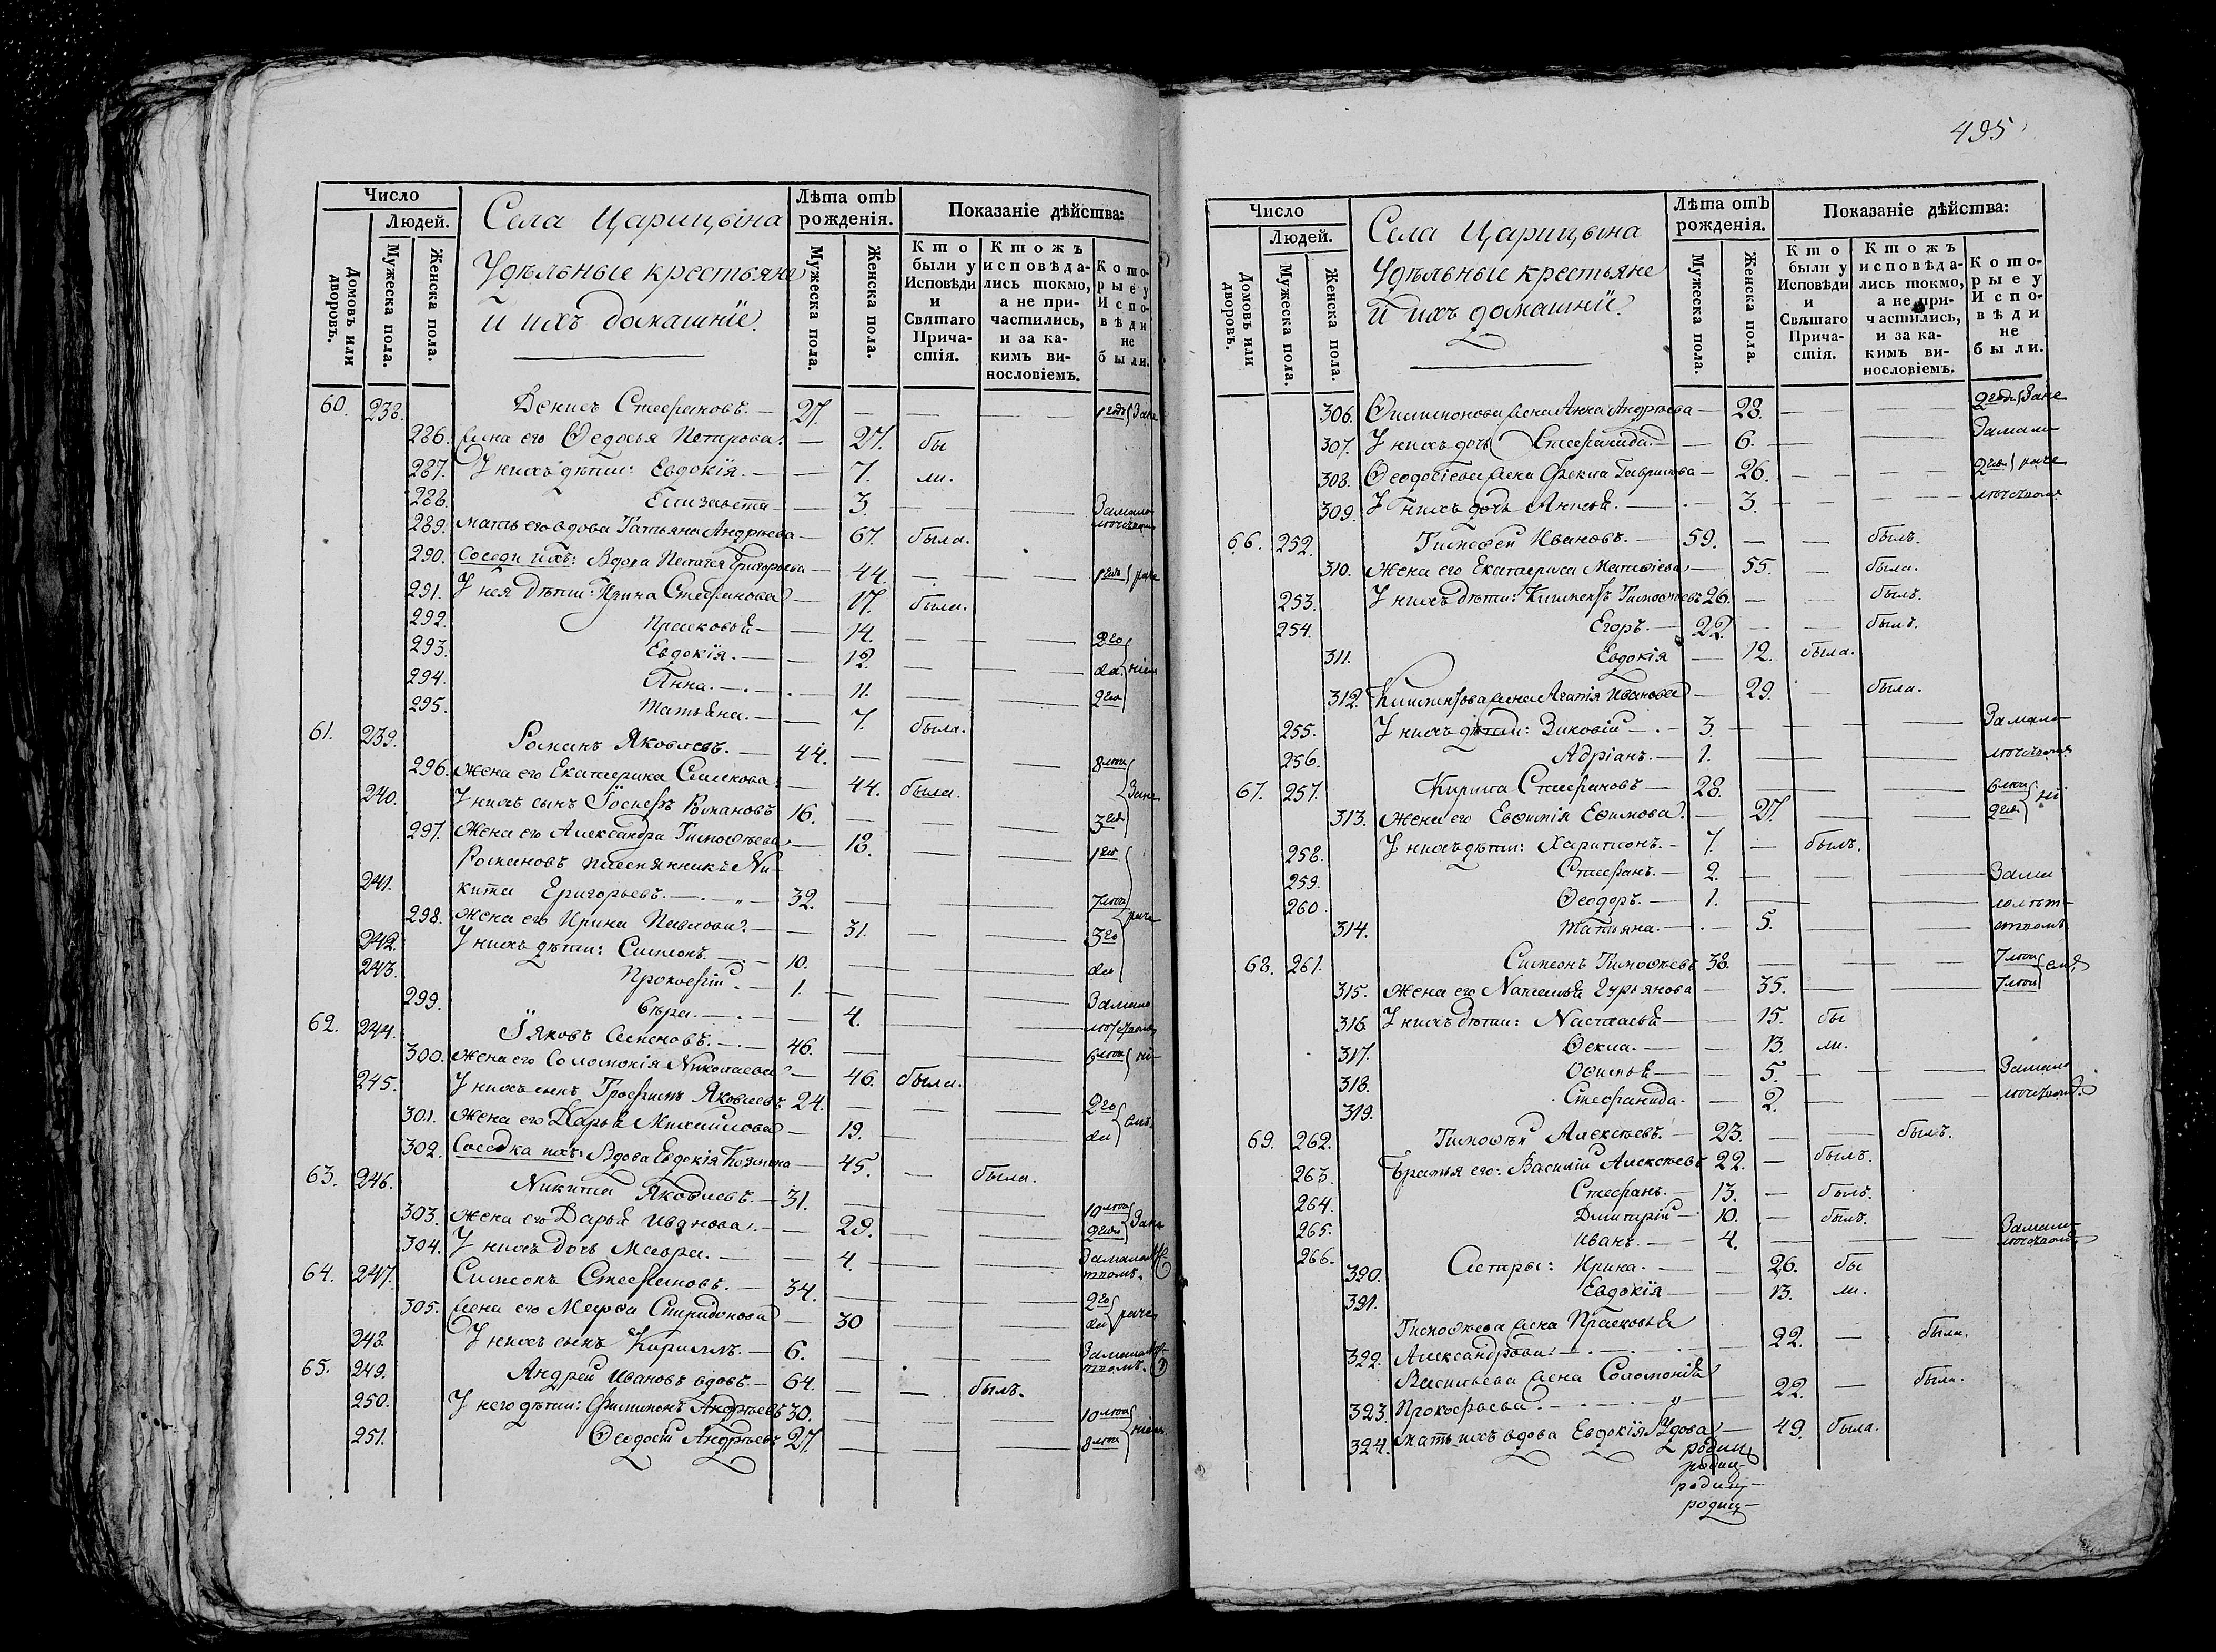 495
Число
Людей.
Домовъ или дворовъ.
Мужеска пола.
Женска пола.
Села Царицына
Удѣльные крестьяне
и ихъ домашніе.
Лѣта отъ рожденія.
Мужеска пола.
Женска пола.
Показаніе дѣйства:
Кто были у Исповѣди и Святаго Причастія.
Ктожъ исповѣдались токмо, а не причастились, и за какимъ винословіемъ.
Которые у Исповѣди не были.
60. 238. Денисъ Стефановъ. — 27. — — — 1 годъ Зане
286. Жена его Ѳедосья Петрова. — 27. бы
287. У нихъ дѣти: Евдокія. — — 7. ли.
288. Елизавета — — 3. — — Замало
289. мать его вдова Татьяна Андрѣева — 67. была. лѣтствомъ
290. Соседи ихъ: Вдова Пелагея Григорьева — 44. — —
291. У нея дѣти: Ирина Стефанова — 17. была.
292. Прасковья — — 14. — —
293. Евдокія. — — 12. — —
294. Анна. — — 11. — —
295. Татьяна. — — 7. была.
61. 239. Романъ Яковлевъ. — 44. — — —
296. Жена его Екатерина Семенова. — 44. была.
240. У нихъ сынъ Іосифъ Романовъ 16. — — —
297. Жена его Александра Тимоѳѣева — 18. — —
Романовъ племянникъ Ни-
241. кита Григорьевъ. — 32. — — —
298. Жена его Ирина Павлова. — 31. — —
242. У нихъ дѣти: Симеонъ. — 10. — —
243. Прокофій. — 1. — —
299. Вѣра. — — 4. — — Замало
62. 244. Іяковъ Семеновъ. — 46. — —
300. Жена его Соломонія Николаева — 46. была.
245. У нихъ сынъ Трофимъ Яковлевъ 24. — —
301. Жена его Дарья Михайлова — 19. — —
302. Соседка ихъ: Вдова Евдокія Козмина — 45. — была.
63. 246. Никита Яковлевъ. — 31. — —
303. Жена его Дарья Иванова. — 29. — —
304. У нихъ дочь Мавра. — — 4. — —
64. 247. Симеонъ Стефановъ. — 34. — —
305. Жена его Марѳа Спиридонова — 30 — —
248. У нихъ сынъ Кириллъ. — 6. — —
65. 249. Андрей Ивановъ вдовъ. — 64. — — былъ.
250. У него дѣти: Филимонъ Андрѣевъ 30. — —
251. Ѳеодосій Андрѣевъ 27. — —
Число
Людей.
Домовъ или дворовъ.
Мужеска пола.
Женска пола.
Села Царицына
Удѣльные крестьяне
и ихъ домашніе.
Лѣта отъ рожденія.
Мужеска пола.
Женска пола.
Показаніе дѣйства:
Кто были у Исповѣди и Святаго Причастія.
Ктожъ исповѣдались токмо, а не причастились, и за какимъ винословіемъ.
Которые у Исповѣди не были.
306. Филимонова жена Анна Андрѣева — 28. — —
307. У нихъ дочь Стефанида. — — 6. — — Замало
308. Ѳеодосіева жена Фекла Гаврилова — 26. — —
309. У нихъ дочь Анисья. — — 3. — — лѣтствомъ
66. 252. Тимоѳей Ивановъ. — 59. — — былъ.
310. Жена его Екатерина Матвіева — 55. — была.
253. У нихъ дѣти: Климентъ Тимоѳѣевъ 26. — — былъ.
254. Егоръ. — 22. — — былъ.
311. Евдокія — 12. была.
312. Климентова жена Агапія Иванова — 29. — была.
255. У нихъ дѣти: Зиновій — 3. — — Замало
256. Адріанъ. — 1. — — лѣтствомъ
67. 257. Кирила Стефановъ — 28. — —
313. Жена его Евѳимія Ефимова. — 27. — —
258. У нихъ дѣти: Харитонъ. — 7. — былъ.
259. Стефанъ. — 2. — — Зама
260. Ѳеодоръ. — 1. — — лолѣт-
314. Татьяна. — — 5. — ствомъ
68. 261. Симеонъ Тимоѳѣевъ 38. — —
315. Жена его Наталья Гурьянова — 35. — —
316. У нихъ дѣти: Настасья — — 15. бы
317. Ѳекла. — — 13. ли.
318. Офимья — — 5. — — Замало
319. Стефанида. — — 2. — — лѣтствомъ.
69. 262. Тимоѳѣй Алексѣевъ. — 23. — — былъ.
263. Братья его: Василій Алексѣевъ 22. — былъ.
264. Стефанъ. — 13. — былъ.
265. Димитрій — 10. — былъ.
266. Иванъ. — 4. — — Замало лѣтствомъ
320. Сестры: Ирина. — — 26. бы
321. Евдокія — — 13. ли.
Тимоѳѣева жена Прасковья
322. Александрова. — 22. — была.
Васильева жена Соломонія
323. Прокофьева. — 22. — была.
324. Мать ихъ вдова Евдокія — 49. была.
родищ
родищ-
родищ-
родищ-